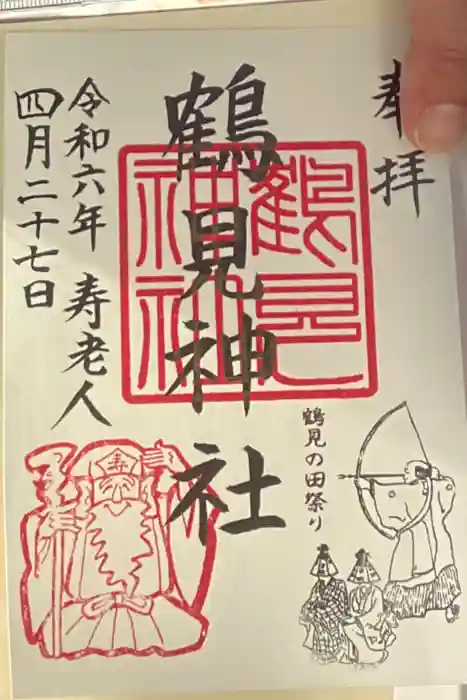 奉拝
鶴見神社
鶴見神社
鶴見の田祭り
令和六年 寿老人
四月二十七日
寿